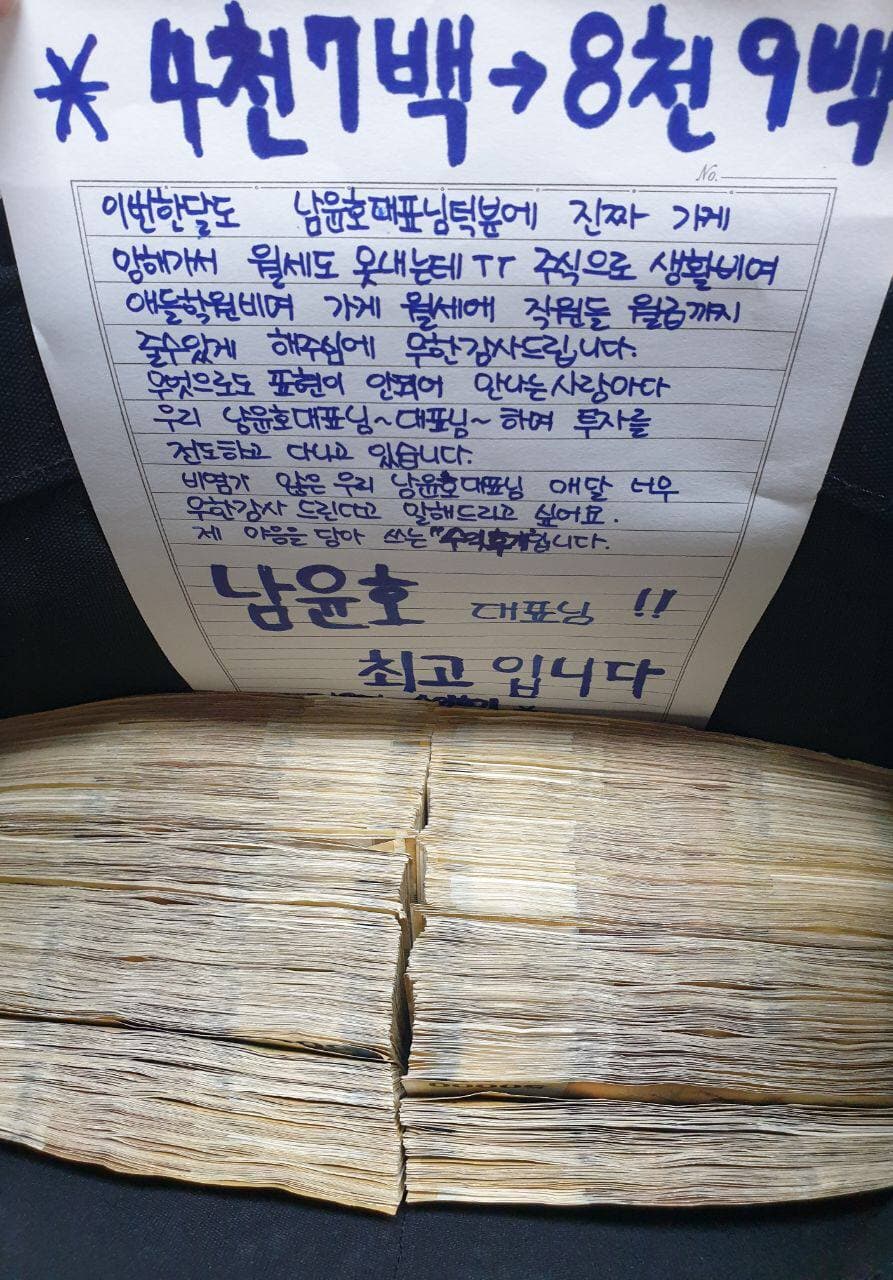 * 4천7백 → 8천9백
No.
이번한달도 남윤호대표님덕분에 진짜 가게
망해가서 월세도 못내는데ㅜㅜ 주식으로 생활비며
애들학원비며 가게 월세에 직원들 월급까지
줄수있게 해주심에 무한감사드립니다.
무엇으로도 표현이 안되어 만나는사람마다
우리 남윤호대표님~대표님~ 하며 투자를
전도하고 다니고 있습니다.
비염가 않은 우리 남윤호대표님 매달 너무
무한감사 드린다고 말해드리고 싶어요.
제 마음을 담아 쓰는 "수익후기"입니다.
남윤호 대표님 !!
최고 입니다
50000